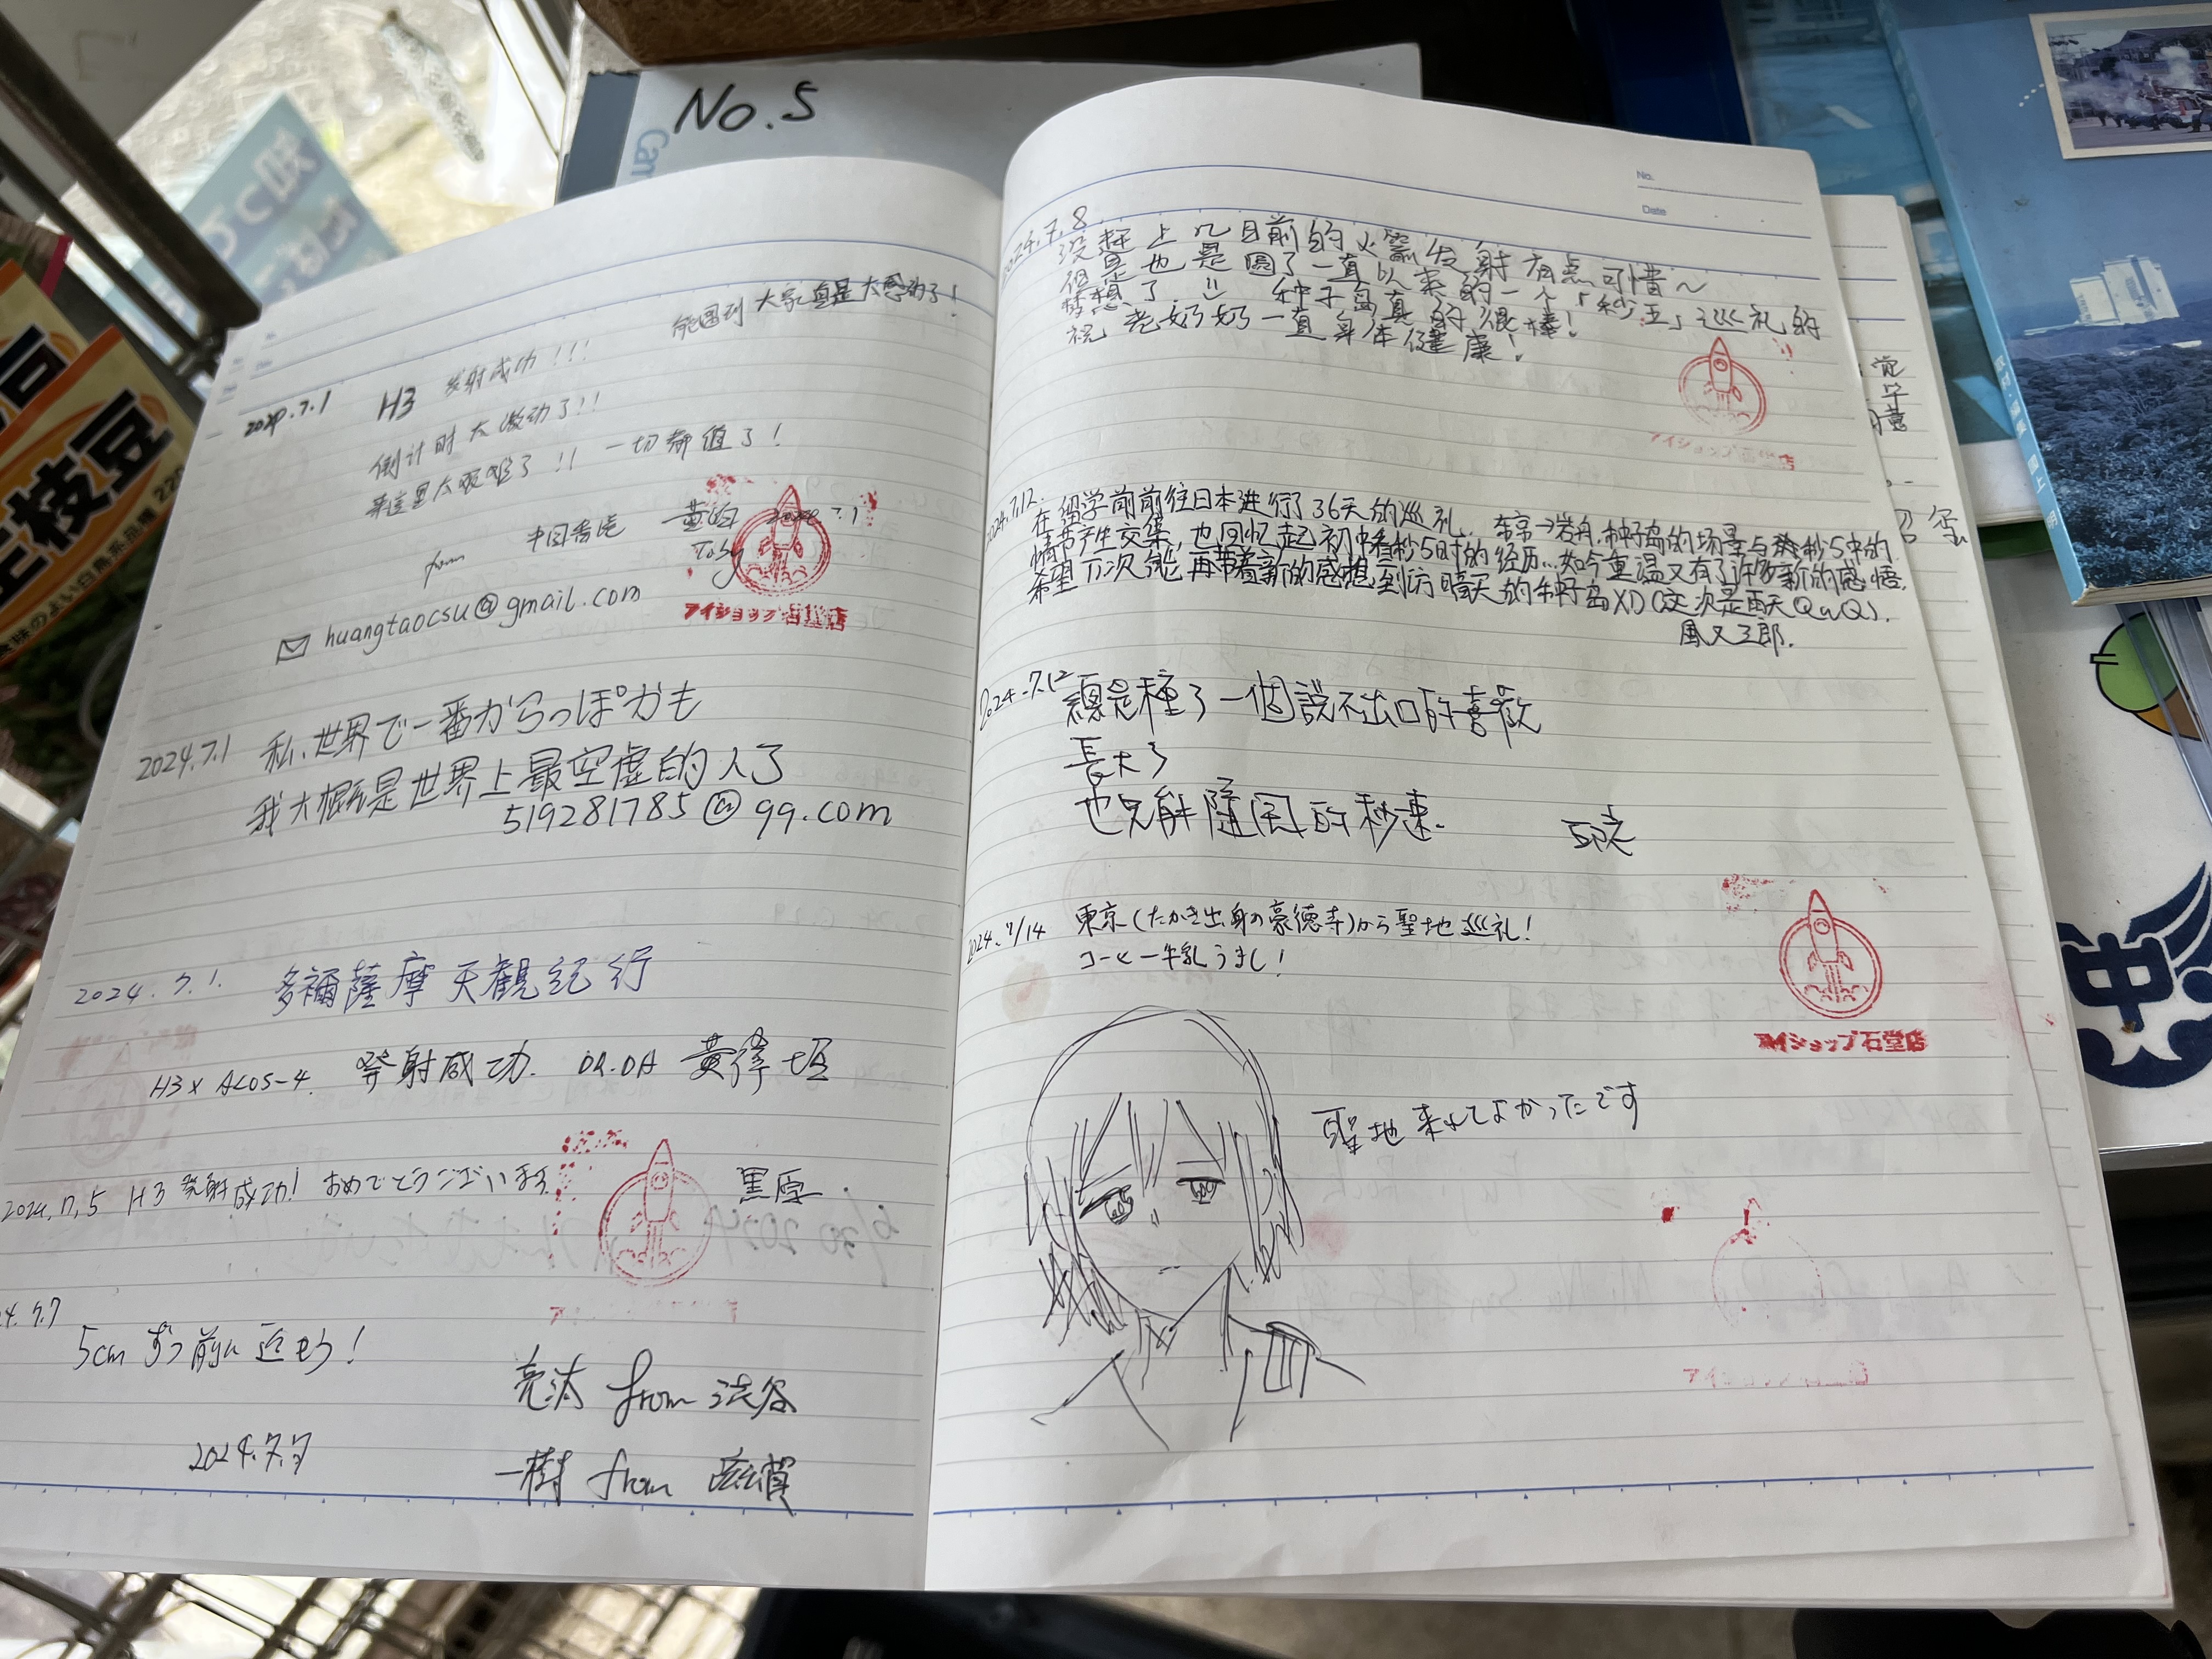 No.5
2024.7.1
H3 发射成功!!!
能遇到大家真是太感动了!
倒计时太激动了!!
来这里太艰难了!! 一切都值了!
from 中国香港
Toby
huangtaocsu@gmail.com
アイショップ石堂店
2024.7.1 私、世界で一番からっぽかも
我大概是世界上最空虚的人了
519281785@qq.com
2024.7.1. 多禰薩摩天観紀行
H3 x ALOS-4 発射成功. DR.DA 黄偉
2024.7.5 H3 発射成功! おめでとうございます
黒原
4.7.7
5cmずつ前に進もう!
from 渋谷
2024.7.7
一樹 from 滋賀
No.
Date
2024.7.8
没赶上几日前的火箭发射有点可惜~
但是也是圆了一直以来的一个「秒五」巡礼的
梦想了 种子岛真的很棒!
祝老奶奶一直身体健康!
アイショップ石堂店
2024.7.12.
在留学前前往日本进行了36天的巡礼, 东京→岩舟,种子岛的场景与秒5中的
情节产生交集,也回忆起初中看秒5时的经历...如今重温又有了许多新的感悟.
希望下次能再带着新的感想到访晴天的种子岛XD(这次是雨天QwQ).
風又三郎.
2024.7.12 總是種了一個說不出口的喜歡
長大了
也只能隨風的秒速.
2024.7/14 東京(たかき出身の豪徳寺)から聖地巡礼!
コーヒー牛乳うまし!
アイショップ石堂店
聖地来れてよかったです
アイショップ石堂店
枝豆
中